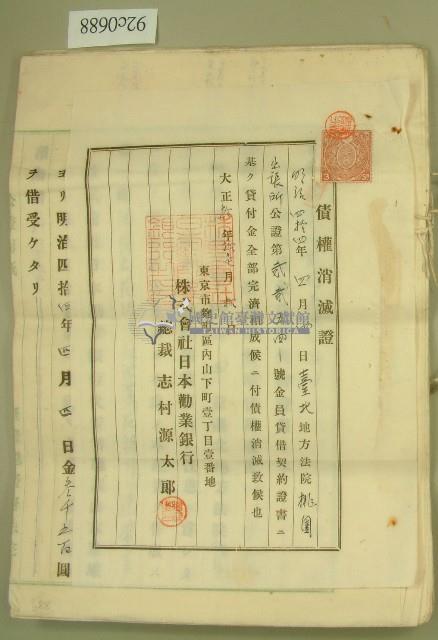 92c0688
債權消滅證
明治四拾四年四月四日臺北地方法院桃園
出張所公證第貳貳四號金員貸借契約證書ニ
基ク貸付金全部完濟相成候ニ付債權消滅致候也
大正 年 月 日
東京市麴町區內山下町壹丁目壹番地
株式會社日本勸業銀行
總裁 志村源太郎
ヨリ明治四拾四年四月四日金 千五百圓
ヲ借受ケタリ
臺灣歷史館文獻館
TAIWAN HISTORICA